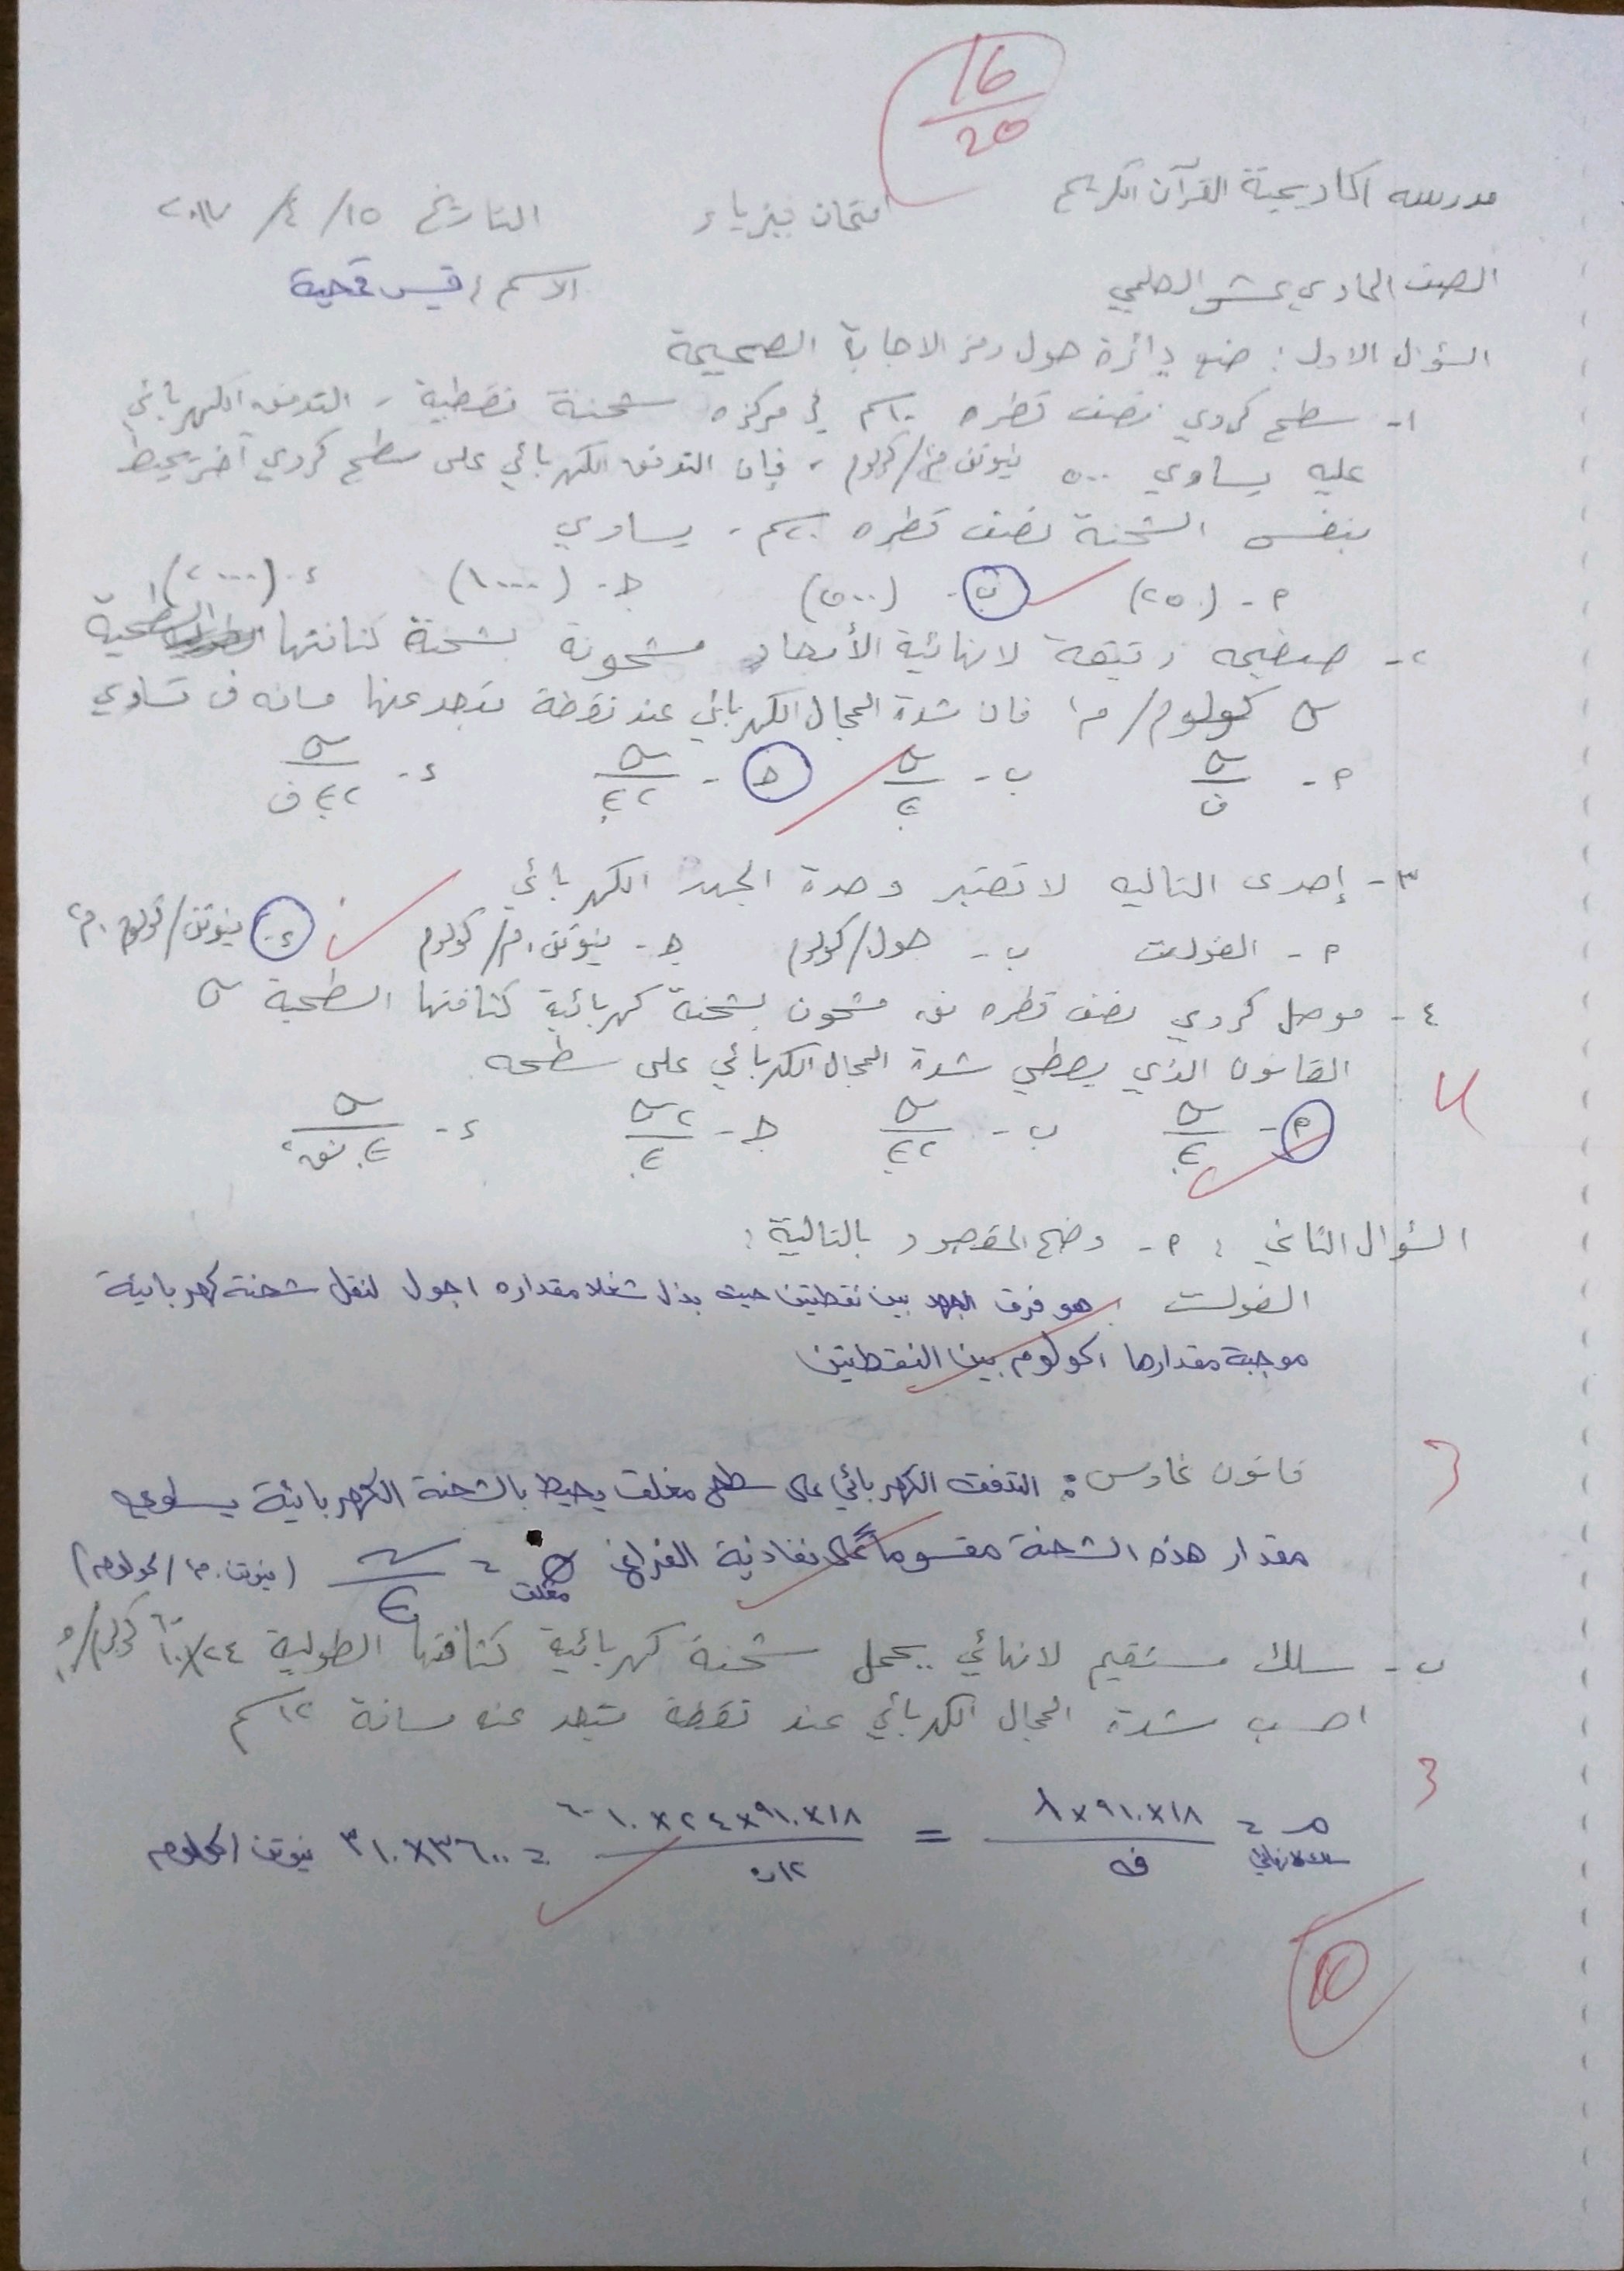 16
20
مدرسة اكاديمية القرآن الكريم
امتحان فيزياء
التاريخ ١٥/ ٤/ ٢٠١٧
الصف الحادي عشر العلمي
الاسم / قيس قمحية
السؤال الاول : ضع دائرة حول رمز الاجابة الصحيحة
١- سطح كروي نصف قطره ١٠سم في مركزه شحنة نقطية ، التدفق الكهربائي
عليه يساوي ٥٠٠ نيوتن م٢/كولوم ، فإن التدفق الكهربائي على سطح كروي آخر يحيط
بنفس الشحنة نصف قطره ٢٠سم ، يساوي
٢ - (٢٥٠) ب - (٥٠٠) جـ - (١٠٠٠) د - (٢٠٠٠)
٢- صفيحه رقيقة لانهائية الأبعاد مشحونة بشحنة كثافتها السطحية
σ كولوم/م٢ فان شدة المجال الكهربائي عند نقطة تبعد عنها مسافه ف تساوي
أ - σ/ف ب - σ/ε. جـ - σ/٢ε. د - σ/٢ε.ف
٣- إحدى التاليه لا تعتبر وحدة الجهد الكهربائي
أ - الفولت ب - جول/كولوم جـ - نيوتن.م/كولوم د - نيوتن/كولوم.م٢
٤- موصل كروي نصف قطره نق مشحون بشحنة كهربائية كثافتها السطحية σ
القانون الذي يعطي شدة المجال الكهربائي على سطحه
أ - σ/ε. ب - σ/٢ε. جـ - ٢σ/ε. د - σ/ε.نق٢
4
السؤال الثاني : أ - وضح المقصود بالتالية :
الفولت : هو فرق الجهد بين نقطتين حيث بذل شغلا مقداره ١ جول لنقل شحنة كهربائية
موجبة مقدارها ١كولوم بين النقطتين
3
قانون غاوس : التدفق الكهربائي على سطح مغلق يحيط بالشحنة الكهربائية يساوي
مقدار هذه الشحنة مقسوماً على نفاذية الفراغ Φ مغلق = س/ε. (نيوتن.م٢/كولوم)
ب - سلك مستقيم لانهائي يحمل شحنة كهربائية كثافتها الطولية ٢٤×١٠-٦ كولوم/م،
احسب شدة المجال الكهربائي عند نقطة تبعد عنه مسافة ١٢سم
3
مـ سلك لانهائي = ١٨×١٠٩×λ/ف = ١٨×١٠٩×٢٤×١٠-٦/١٢ = ٣٦٠٠×١٠٣ نيوتن/كولوم
10